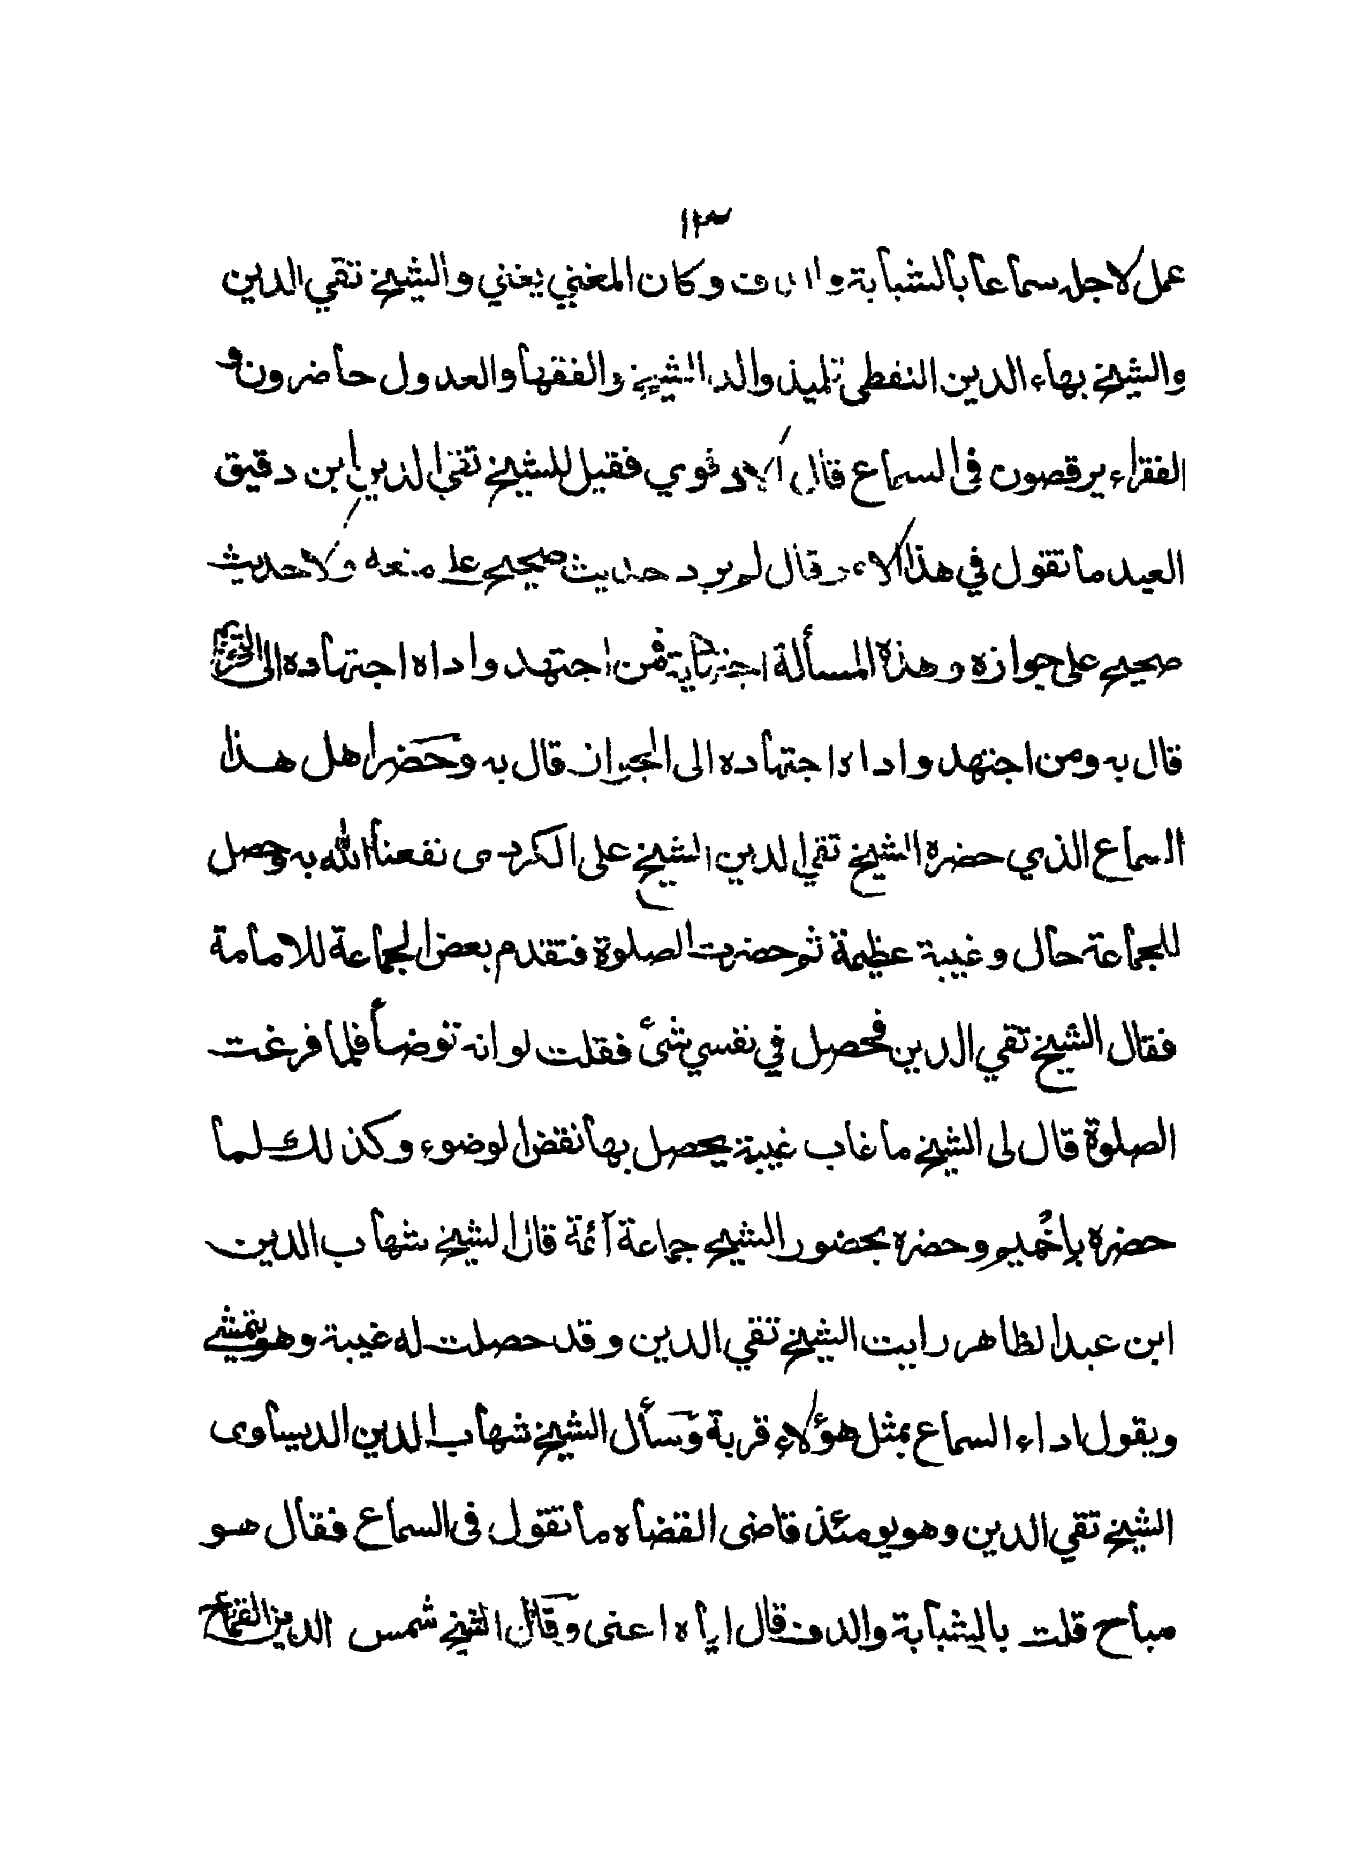 ١٢٣
عمل لاجله سماعا بالشبابة والدف وكان المغني يغني والشيخ تقي الدين
والشيخ بهاء الدين النفطى تلميذ والد الشيخ والفقهأ والعدول حاضرون و
الفقراء يرقصون فى السماع قال الادفوي فقيل للشيخ تقي الدين ابن دقيق
العيد ما تقول في هذا الامر قال لم يرد حديث صحيح على منعه ولا حديث
صحيح على جوازه وهذه المسألة اجتهادية فمن اجتهد واداه اجتهاده الى التحريم
قال به ومن اجتهد واداه اجتهاده الى الجواز قال به وحَضر اهل هذا
السماع الذي حضره الشيخ تقي الدين الشيخ على الكردى نفعنا الله به وحصل
للجماعة حال وغيبة عظيمة ثم حضرت الصلوة فتقدم بعض الجماعة للامامة
فقال الشيخ تقي الدين فحصل في نفسي شئ فقلت لو انه توضأ فلما فرغت
الصلوة قال لى الشيخ ما غاب غيبة يحصل بها نقض الوضوء وكذلك سلما
حضره بإخميم وحضره بحضور الشيخ جماعة آئمة قال الشيخ شهاب الدين
ابن عبد الظاهر رايت الشيخ تقي الدين وقد حصلت له غيبة وهو يتمشى
ويقول اداء السماع بمثل هؤلاء قربة وسأل الشيخ شهاب الدين الديساوى
الشيخ تقي الدين وهو يومئذ قاضى القضاه ما تقول فى السماع فقال هو
مباح قلت بالشبابة والدف قال اياه اعنى وقال الشيخ شمس الدين القماح